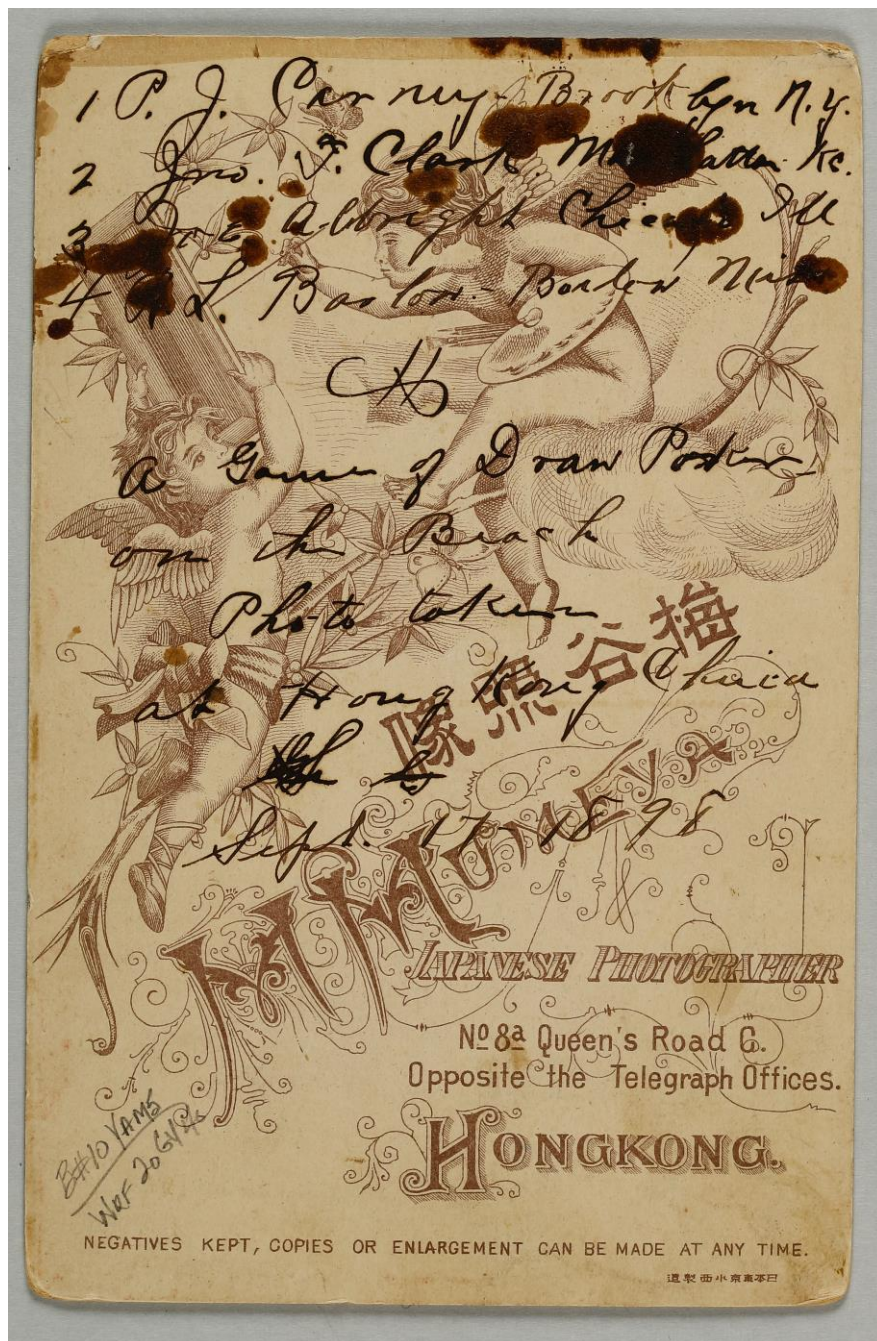 1 P. J. Carney Brooklyn N.Y.
2 Jno. F. Clark
3 Albright Chicago Ill
4 L. Barlow - Boston
A Game of Draw Poker
on the Beach
Photo taken
at Hong Kong China
Sept. 17 - 1898
梅谷照像
M MUMEYA
JAPANESE PHOTOGRAPHER
No 8a Queen's Road C.
Opposite the Telegraph Offices.
HONGKONG.
B#10 YAMS
NEGATIVES KEPT, COPIES OR ENLARGEMENT CAN BE MADE AT ANY TIME.